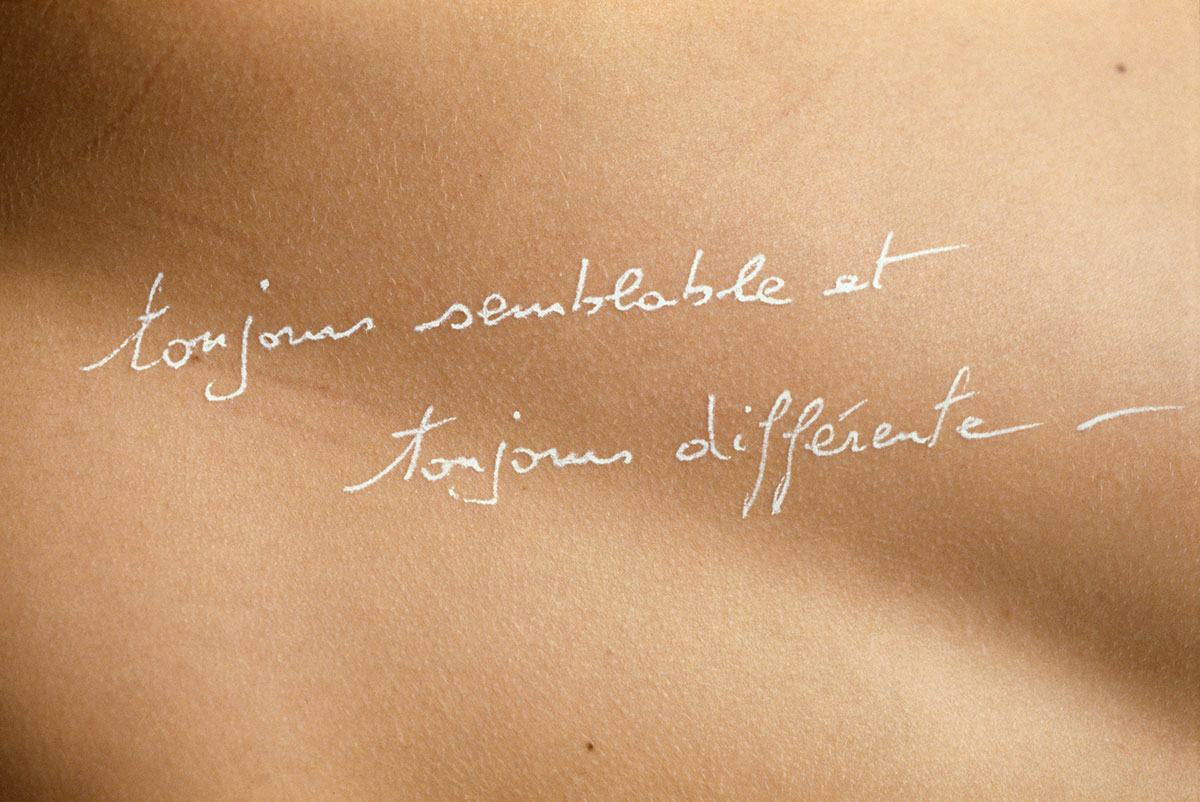 toujours semblable et
toujours différente —